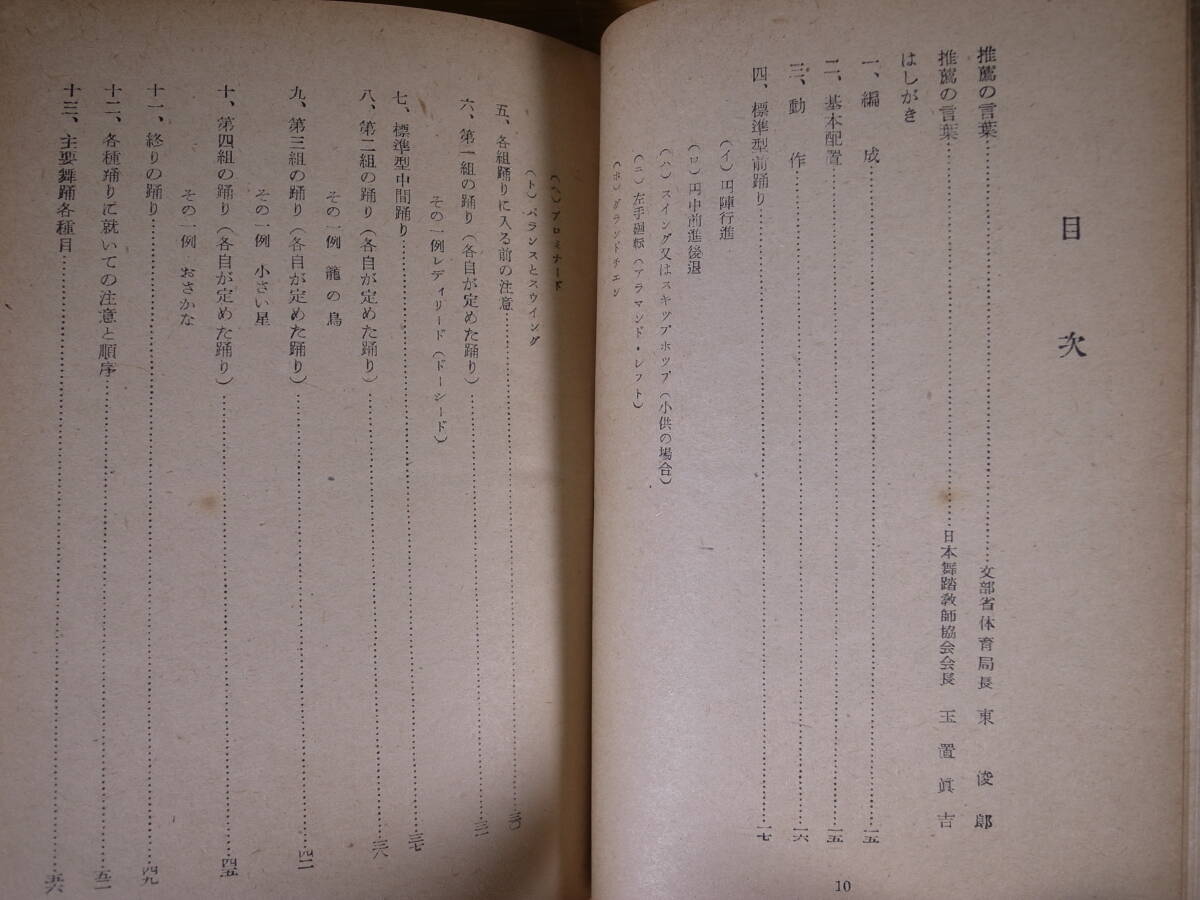 目次
推薦の言葉……文部省体育局長 東俊郎
推薦の言葉……日本舞踏教師協会会長 玉置眞吉
はしがき
一、編成……一五
二、基本配置……一五
三、動作……一六
四、標準型前踊り……一七
(イ)円陣行進
(ロ)円中前進後退
(ハ)スイング又はスキップホップ(小供の場合)
(ニ)左手廻転(アラマンド・レフト)
(ホ)グランドチエン
10
(ヘ)プロミナード
(ト)バランスとスウイング
五、各組踊りに入る前の注意……三〇
六、第一組の踊り(各自が定めた踊り)……三二
その一例レディリード(ドーシード)
七、標準型中間踊り……三七
八、第二組の踊り(各自が定めた踊り)……三八
その一例 籠の鳥
九、第三組の踊り(各自が定めた踊り)……四二
その一例 小さい星
十、第四組の踊り(各自が定めた踊り)……四五
その一例 おさかな
十一、終りの踊り……四九
十二、各種踊りに就いての注意と順序……五二
十三、主要舞踊各種目……五六